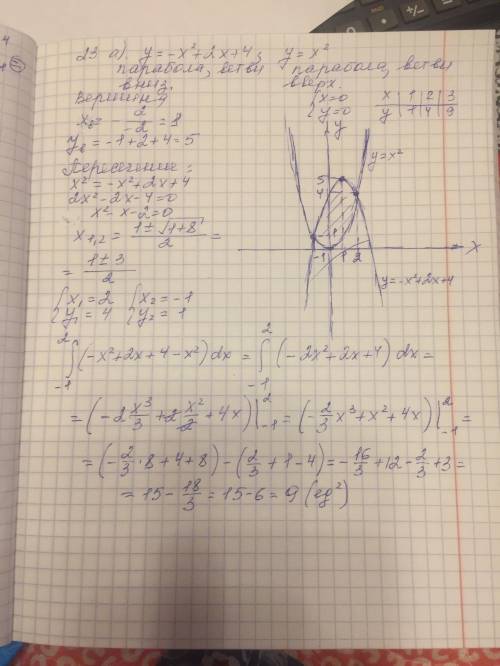 23 а) y = -x²+2x+4; y = x²
парабола, ветви парабола, ветви
вниз. вверх.
Вершина
x₀ = - 2/-2 = 1
{x=0 {y=0
x | 1 | 2 | 3
y | 1 | 4 | 9
y₀ = -1+2+4 = 5
Пересечение:
x² = -x²+2x+4
2x²-2x-4=0
x²-x-2=0
x₁,₂ = (1±√1+8)/2 =
= (1±3)/2
{x₁=2 {x₂=-1
{y₁=4 {y₂=1
y
y=x²
5
4
-1 1 2
x
y=-x²+2x+4
∫₋₁² (-x²+2x+4-x²)dx = ∫₋₁² (-2x²+2x+4)dx =
= (-2 x³/3 + 2 x²/2 + 4x)|₋₁² = (-2/3 x³+x²+4x)|₋₁² =
= (-2/3·8+4+8) - (2/3+1-4) = -16/3+12-2/3+3 =
= 15 - 18/3 = 15-6 = 9 (eg²)